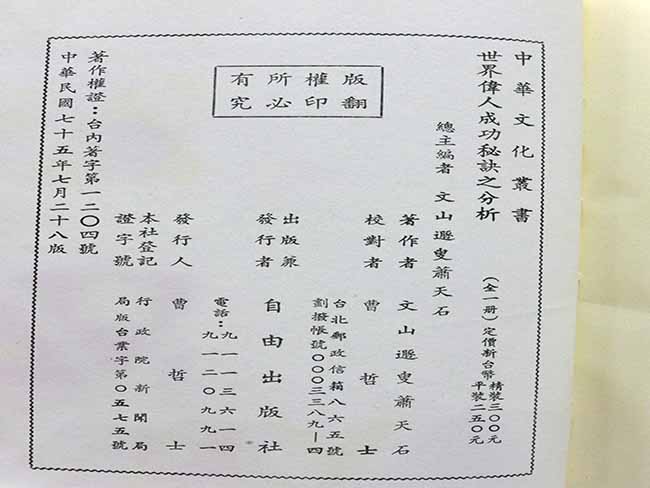 中華文化叢書
世界偉人成功秘訣之分析
(全一冊)定價新台幣精裝三〇〇元
平裝二五〇元
總主編者 文山遯叟蕭天石
著作者 文山遯叟蕭天石
校對者 曹哲士
台北郵政信箱八六五號
劃撥帳號〇〇〇三三八九—四
出版兼
發行者 自由出版社
電話:九一一三六一四
九一二〇九九一
發行人 曹哲士
本社登記 行政院新聞局
證字號 局版台業字第〇五七五號
版權所有
翻印必究
著作權證:台內著字第一二〇四號
中華民國七十五年七月二十八版